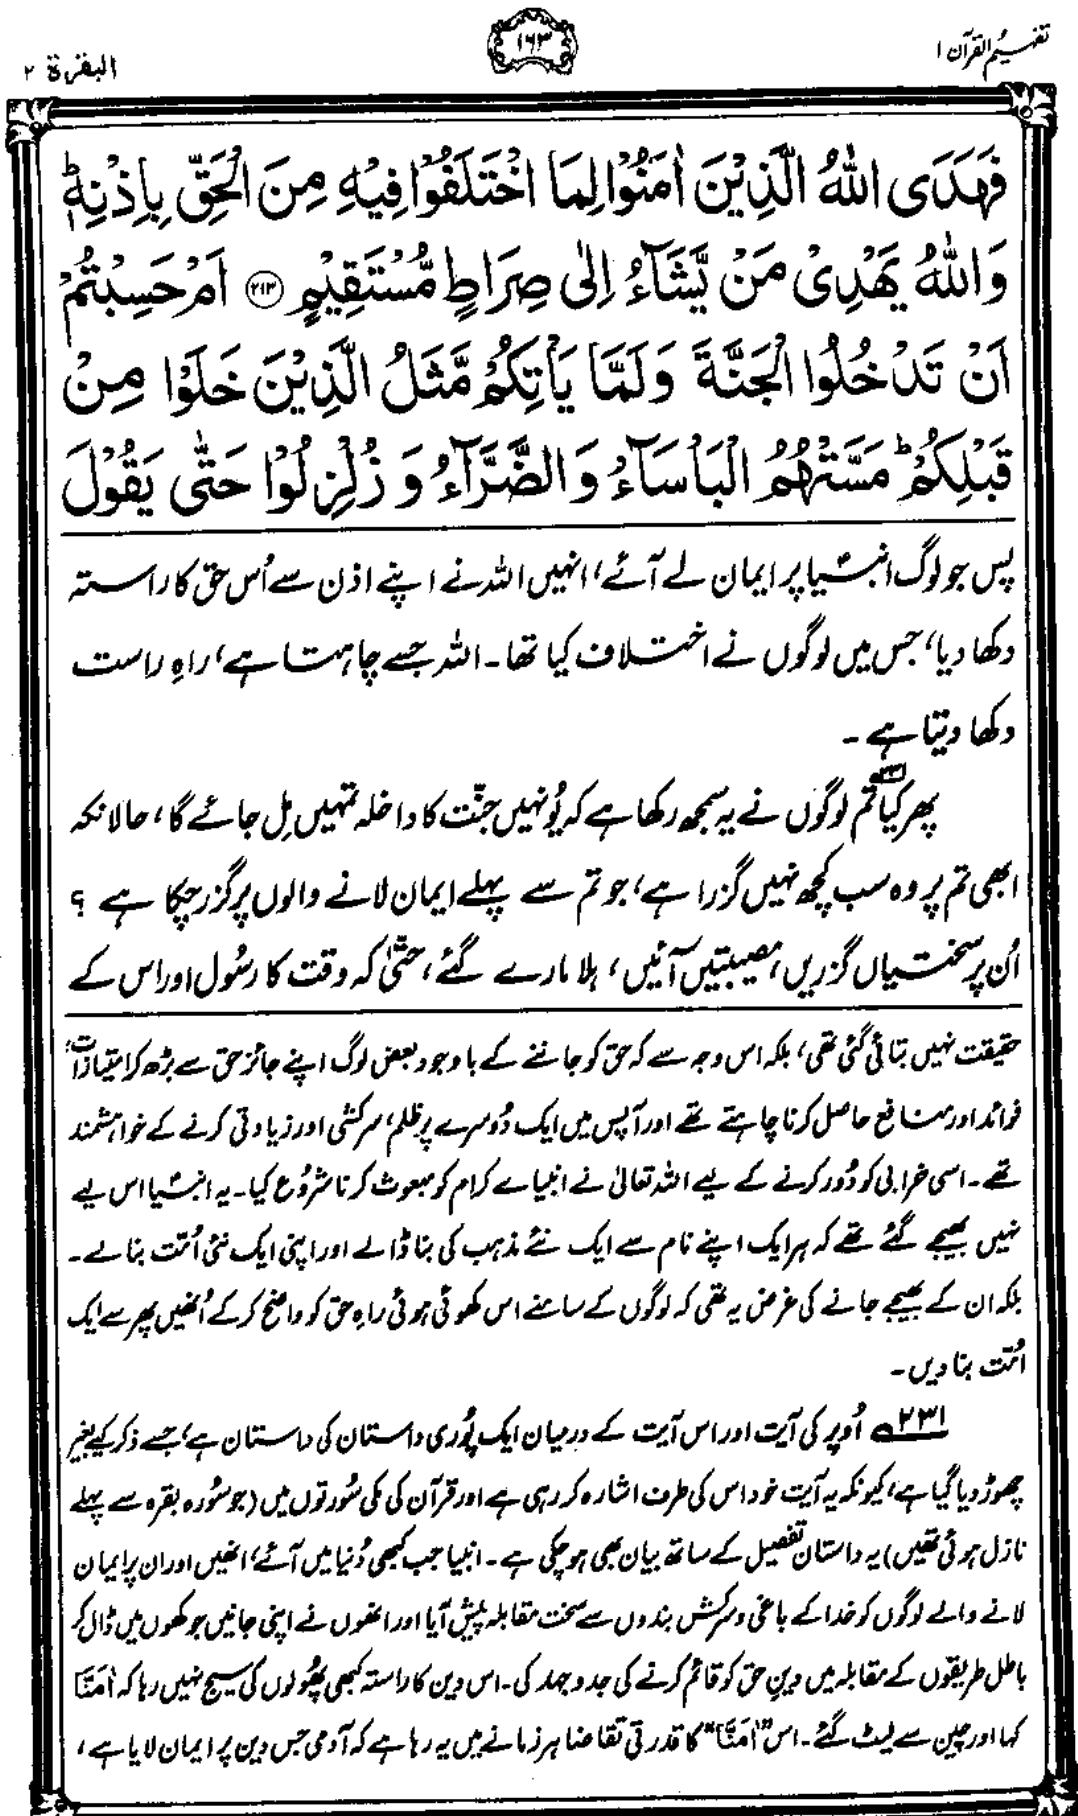 تفہیم القرآن ۱
۱۶۳
البقرۃ ۲
فَهَدَى اللّٰهُ الَّذِيْنَ اٰمَنُوْا لِمَا اخْتَلَفُوْا فِيْهِ مِنَ الْحَقِّ بِاِذْنِهٖ ؕ
وَاللّٰهُ يَهْدِىْ مَنْ يَّشَآءُ اِلٰى صِرَاطٍ مُّسْتَقِيْمٍ ﴿۲۱۳﴾ اَمْ حَسِبْتُمْ
اَنْ تَدْخُلُوا الْجَنَّةَ وَلَمَّا يَاْتِكُمْ مَّثَلُ الَّذِيْنَ خَلَوْا مِنْ
قَبْلِكُمْ ؕ مَسَّتْهُمُ الْبَاْسَآءُ وَالضَّرَّآءُ وَزُلْزِلُوْا حَتّٰى يَقُوْلَ
پس جو لوگ انبیا پر ایمان لے آئے، انہیں اللہ نے اپنے اذن سے اُس حق کا راستہ
دکھا دیا، جس میں لوگوں نے اختلاف کیا تھا۔ اللہ جسے چاہتا ہے، راہِ راست
دکھا دیتا ہے۔
پھر کیا ۲۳۱ تم لوگوں نے یہ سمجھ رکھا ہے کہ یُونہیں جنّت کا داخلہ تمہیں مِل جائے گا، حالانکہ
ابھی تم پر وہ سب کچھ نہیں گزرا ہے، جو تم سے پہلے ایمان لانے والوں پر گزر چکا ہے ؟
اُن پر سختیاں گزریں، مصیبتیں آئیں، ہلا مارے گئے، حتّیٰ کہ وقت کا رسُول اور اس کے
حقیقت نہیں بتائی گئی تھی، بلکہ اس وجہ سے کہ حق کو جاننے کے باوجود بعض لوگ اپنے جائز حق سے بڑھ کر امتیازات،
فوائد اور منافع حاصل کرنا چاہتے تھے اور آپس میں ایک دُوسرے پر ظلم، سرکشی اور زیادتی کرنے کے خواہشمند
تھے۔ اسی خرابی کو دُور کرنے کے لیے اللہ تعالیٰ نے انبیاے کرام کو مبعوث کرنا شرُوع کیا۔ یہ انبیا اس لیے
نہیں بھیجے گئے تھے کہ ہر ایک اپنے نام سے ایک نئے مذہب کی بنا ڈالے اور اپنی ایک نئی اُمّت بنالے۔
بلکہ ان کے بھیجے جانے کی غرض یہ تھی کہ لوگوں کے سامنے اس کھوئی ہوئی راہِ حق کو واضح کرکے اُنھیں پھر سے ایک
اُمّت بنا دیں۔
۲۳۱؎ اُوپر کی آیت اور اس آیت کے درمیان ایک پُوری داستان کی داستان ہے، جسے ذکر کیے بغیر
چھوڑ دیا گیا ہے، کیونکہ یہ آیت خود اس کی طرف اشارہ کر رہی ہے اور قرآن کی مکی سُورتوں میں (جو سُورہ بقرہ سے پہلے
نازل ہوئی تھیں) یہ داستان تفصیل کے ساتھ بیان بھی ہو چکی ہے۔ انبیا جب کبھی دُنیا میں آئے، انھیں اور ان پر ایمان
لانے والے لوگوں کو خدا کے باغی و سرکش بندوں سے سخت مقابلہ پیش آیا اور انھوں نے اپنی جانیں جوکھوں میں ڈال کر
باطل طریقوں کے مقابلہ میں دینِ حق کو قائم کرنے کی جدوجہد کی۔ اس دین کا راستہ کبھی پھُولوں کی سیج نہیں رہا کہ اٰمَنَّا
کہا اور چین سے لیٹ گئے۔ اس "اٰمَنَّا" کا قدرتی تقاضا ہر زمانے میں یہ رہا ہے کہ آدمی جس دین پر ایمان لایا ہے،